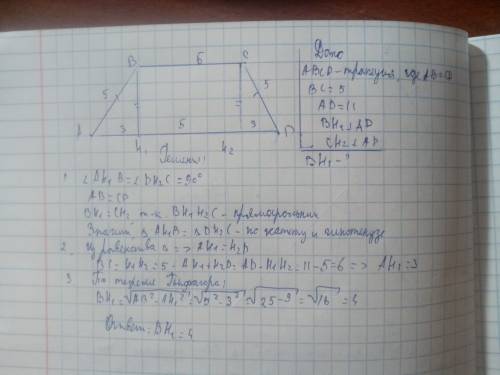 B 5 C
5 5
A 3 5 3 D
H₁ H₂
Дано
ABCD - трапеция, где AB=CD
BC = 5
AD = 11
BH₁ ⊥ AD
CH₂ ⊥ AD
BH₁ - ?
Решение:
1 ∠AH₁B = ∠DH₂C = 90°
AB = CD
BH₁ = CH₂ т.к. BH₁H₂C - прямоугольник
Значит △AH₁B = △DH₂C - по катету и гипотенузе
2 Из равенства △ => AH₁ = H₂D
BC = H₁H₂ = 5 - AH₁ + H₂D = AD - H₁H₂ = 11 - 5 = 6 => AH₁ = 3
3 По теореме Пифагора:
BH₁ = √AB² - AH₁² = √5² - 3² √25 - 9 = √16 = 4
Ответ: BH₁ = 4